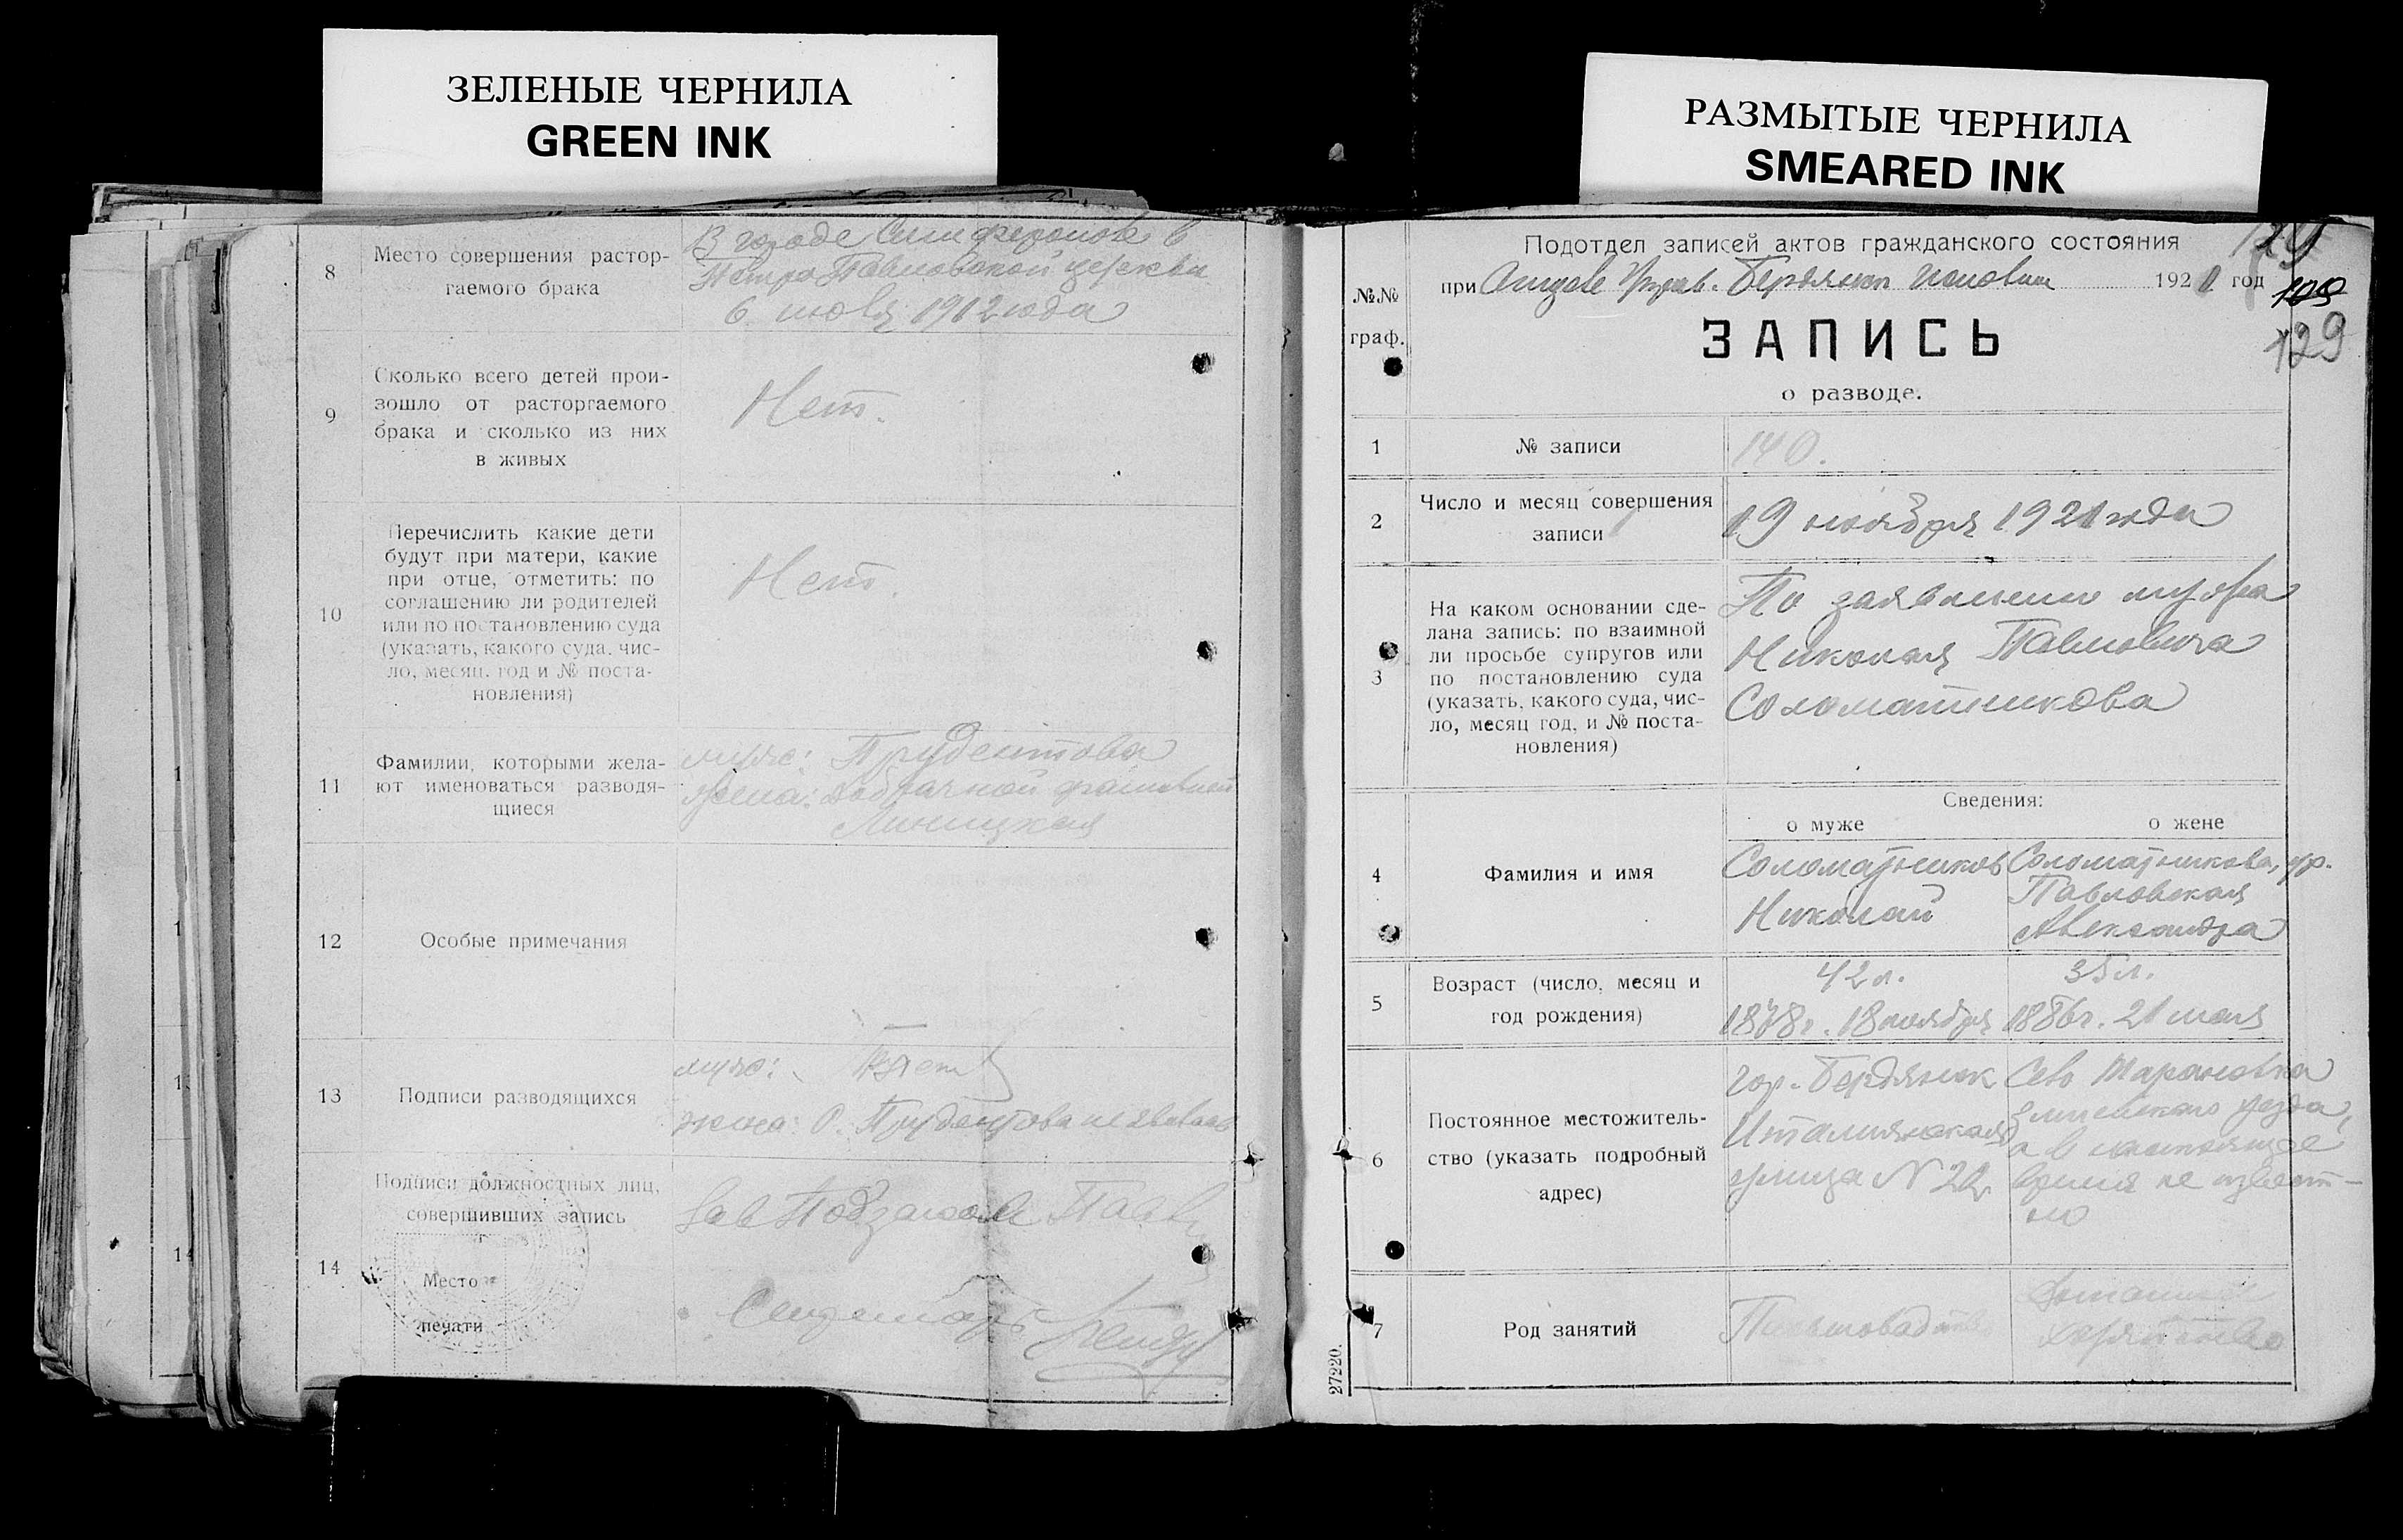 ЗЕЛЕНЫЕ ЧЕРНИЛА
GREEN INK
РАЗМЫТЫЕ ЧЕРНИЛА
SMEARED INK
8
Место совершения растор-
гаемого брака
В городе Симферополе в
Петро Павловской церкви
6 июля 1912 года
9
Сколько всего детей прои-
зошло от расторгаемого
брака и сколько из них
в живых
Нет.
10
Перечислить какие дети
будут при матери, какие
при отце, отметить: по
соглашению ли родителей
или по постановлению суда
(указать, какого суда, чис-
ло, месяц, год и № поста-
новления)
Нет.
11
Фамилии, которыми жела-
ют именоваться разводя-
щиеся
муж: Прудентова
жена: добрачной фамилией
Линицкая
12
Особые примечания
13
Подписи разводящихся
муж:
жена: О. Прудентова не явилась
14
Подписи должностных лиц,
совершивших запись
Место
печати
Зав
Секретарь
Подотдел записей актов гражданского состояния
129
№№
граф.
при Отделе Управ. Бердянск 1921 год
109
129
ЗАПИСЬ
о разводе.
1
№ записи
140.
2
Число и месяц совершения
записи
19 ноября 1921 года
3
На каком основании сде-
лана запись: по взаимной
ли просьбе супругов или
по постановлению суда
(указать, какого суда, чис-
ло, месяц год, и № поста-
новления)
По заявлению мужа
Николая Павловича
Соломатникова
Сведения:
о муже
о жене
4
Фамилия и имя
Соломатников
Николай
Соломатникова, ур.
Павловская
Александра
5
Возраст (число, месяц и
год рождения)
42 л.
1878 г. 18 ноября
35 л.
1886 г. 21 мая
6
Постоянное местожитель-
ство (указать подробный
адрес)
гор. Бердянск
Итальянская
улица N 22
Село Тарановка
Змиевского уезда,
а в настоящее
время не извест-
но
7
Род занятий
Домашнее
хозяйство
27220.